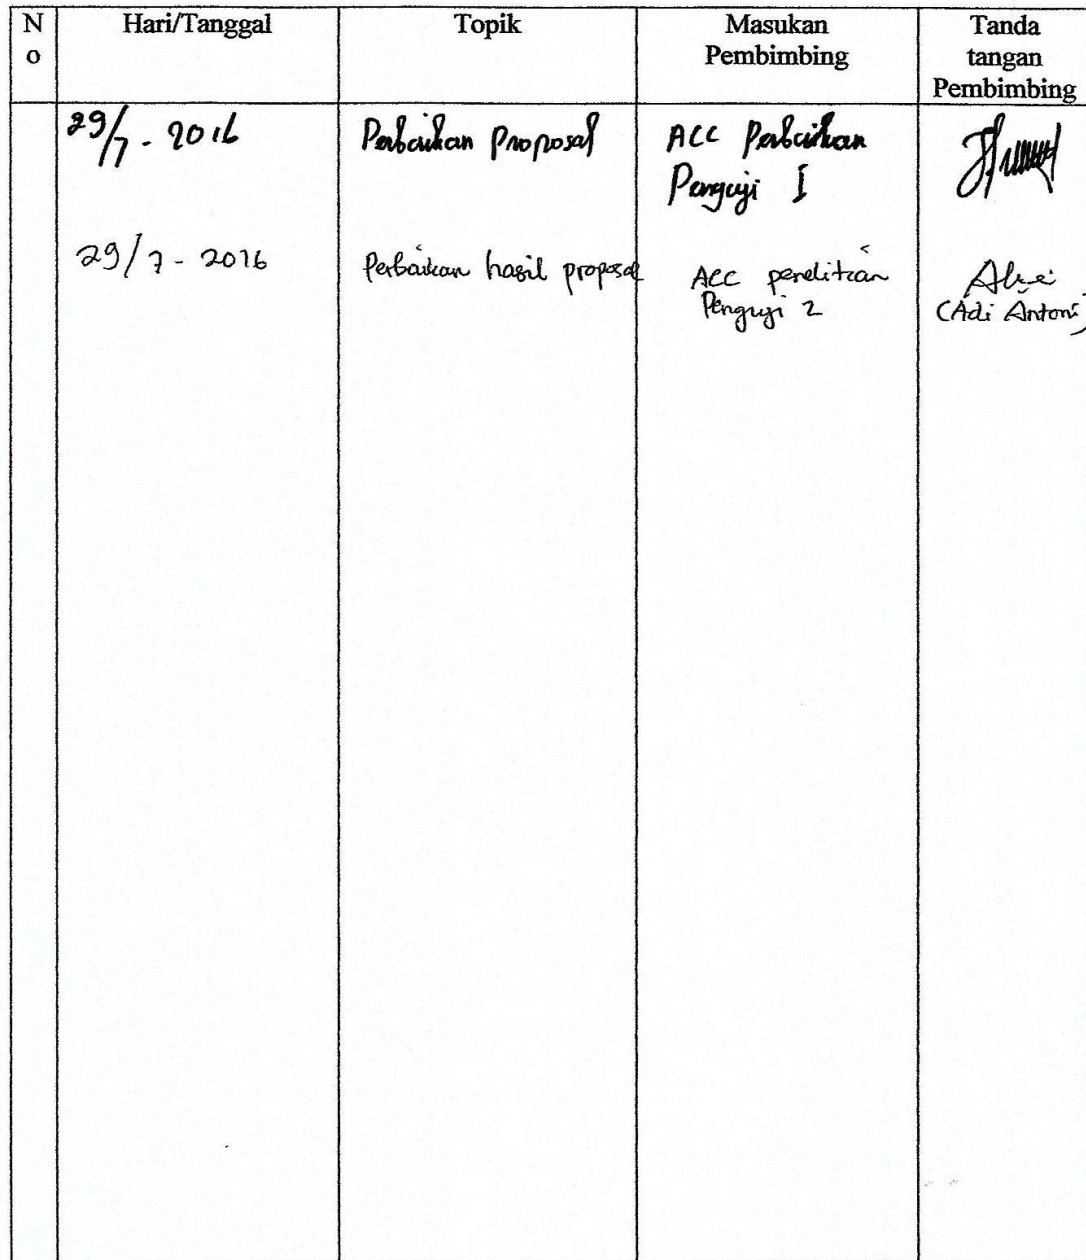 N
o
Hari/Tanggal
Topik
Masukan
Pembimbing
Tanda
tangan
Pembimbing
29/7 - 2016
Perbaikan Proposal
ACC Perbaikan
Penguji I
29/7 - 2016
Perbaikan hasil proposal
ACC penelitian
Penguji 2
(Adi Antoni)